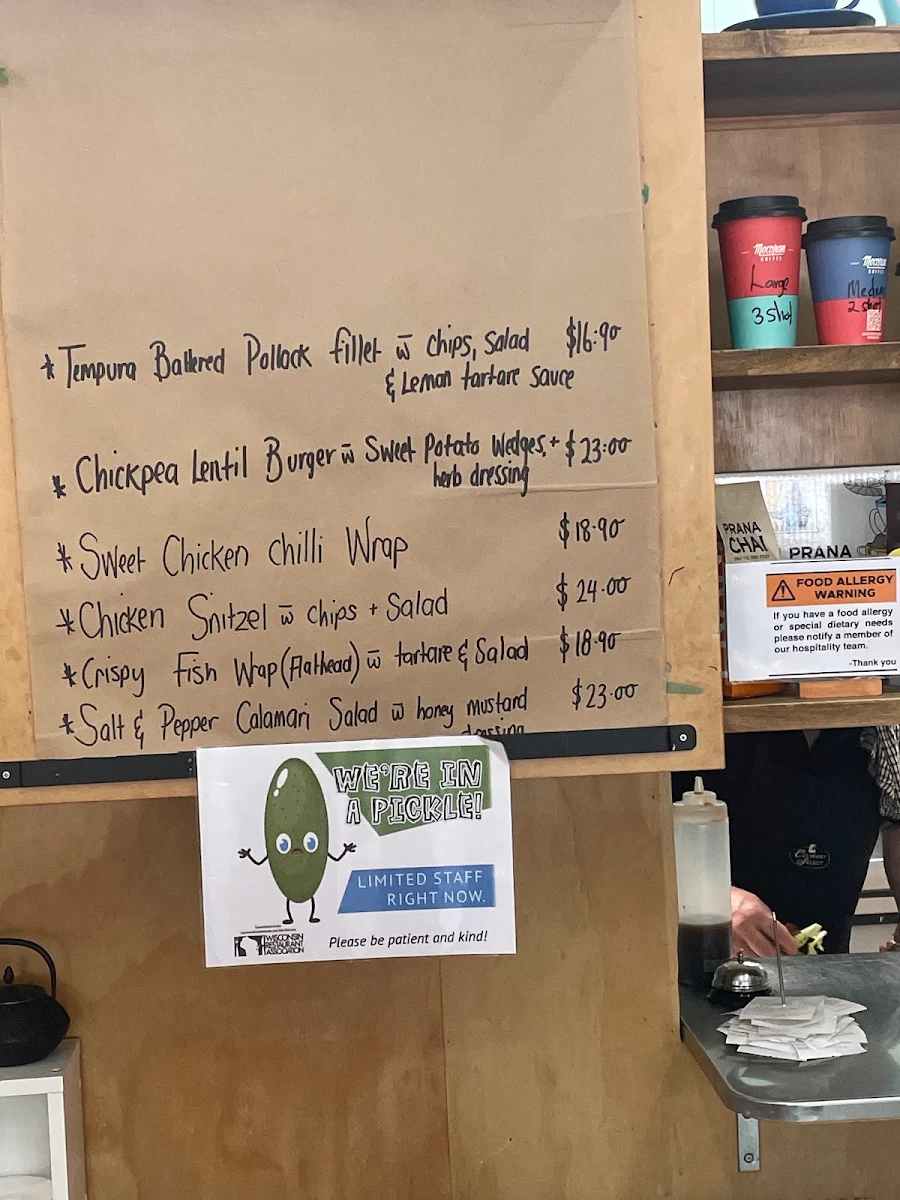 * Tempura Battered Pollack fillet w̄ chips, Salad $16.90
& Lemon tartare sauce
* Chickpea Lentil Burger w̄ Sweet Potato Wedges, + $23.00
herb dressing
* Sweet Chicken Chilli Wrap $18.90
* Chicken Snitzel w̄ chips + Salad $24.00
* Crispy Fish Wrap (Flathead) w̄ tartare & Salad $18.90
* Salt & Pepper Calamari Salad w̄ honey mustard $23.00
dressing
WE'RE IN
A PICKLE!
LIMITED STAFF
RIGHT NOW.
Please be patient and kind!
WISCONSIN
RESTAURANT
ASSOCIATION
Mocopan
COFFEE
Large
3 Shot
Medium
2 shot
PRANA
CHAI
PRANA
FOOD ALLERGY
WARNING
If you have a food allergy
or special dietary needs
please notify a member of
our hospitality team.
-Thank you